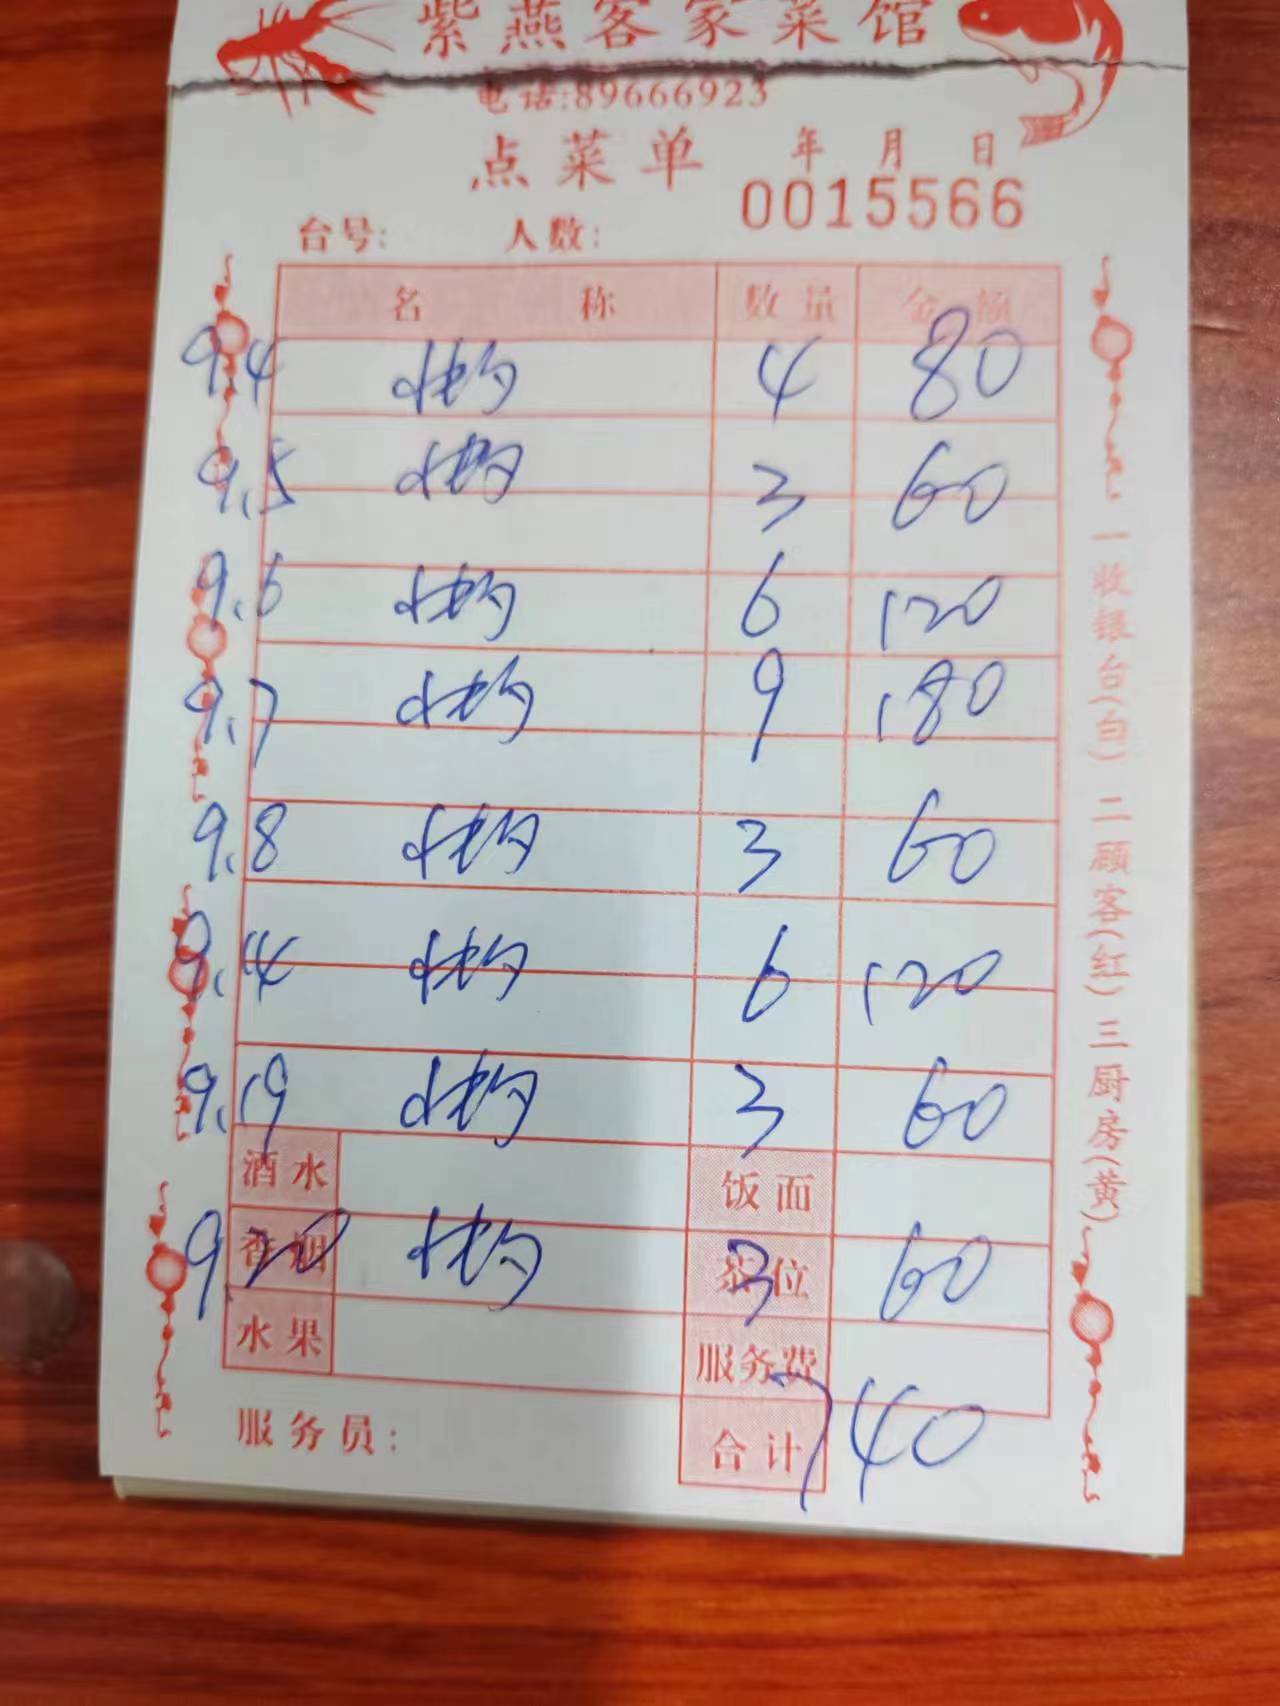 紫燕客家菜馆
电话:89666923
点菜单 年 月 日
0015566
台号: 人数:
名 称 数量 金额
9.4 4 80
9.5 3 60
9.6 6 120
9.7 9 180
9.8 3 60
9.14 6 120
9.19 3 60
酒水 饭面
香烟 茶位
9.20 3 60
水果 服务费
服务员: 合计 740
一收银台(白) 二顾客(红) 三厨房(黄)